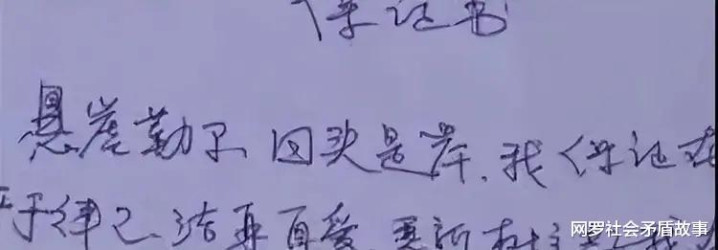 保证书
悬崖勒马 回头是岸、我保证在
严于律己 洁身自爱 重新
网罗社会矛盾故事